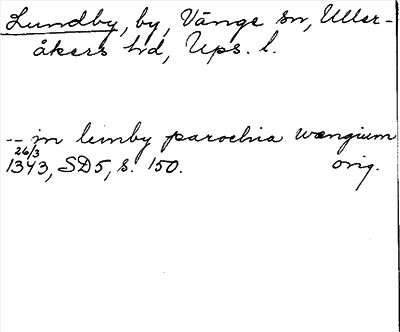 Lundby, by, Vänge sn, Uller-
åkers hd, Ups. l.
-- in lumby parochia wængium
26/3
1343, SD5, s. 150. orig.